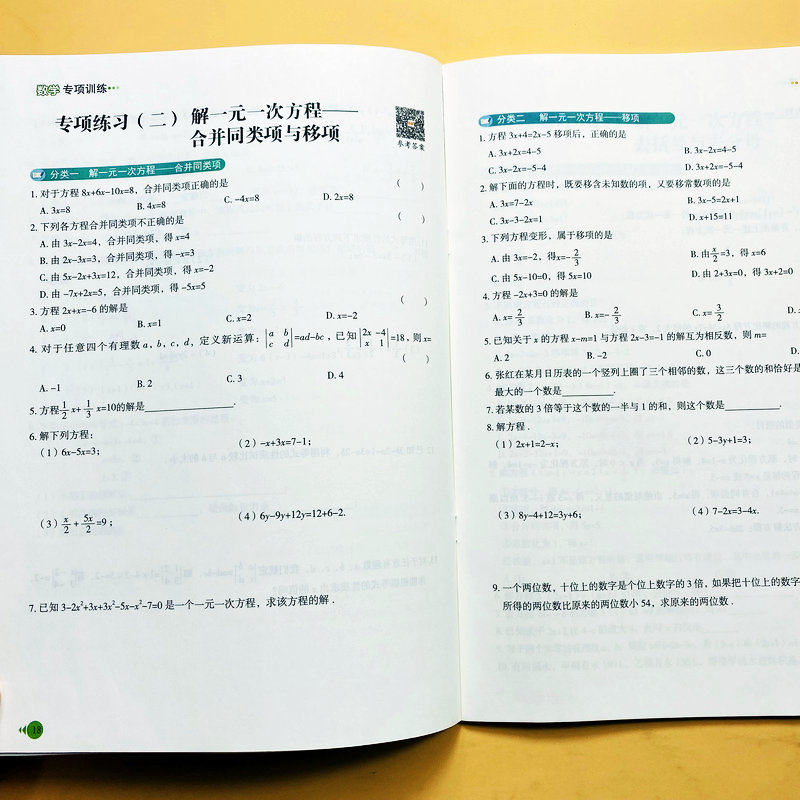 数学 专项训练
专项练习（二） 解一元一次方程——
合并同类项与移项
参考答案
分类一 解一元一次方程——合并同类项
1. 对于方程 8x+6x-10x=8，合并同类项正确的是 （ ）
A. 3x=8 B. 4x=8 C. -4x=8 D. 2x=8
2. 下列各方程合并同类项不正确的是 （ ）
A. 由 3x-2x=4，合并同类项，得 x=4
B. 由 2x-3x=3，合并同类项，得 -x=3
C. 由 5x-2x+3x=12，合并同类项，得 x=-2
D. 由 -7x+2x=5，合并同类项，得 -5x=5
3. 方程 2x+x=-6 的解是 （ ）
A. x=0 B. x=1 C. x=2 D. x=-2
4. 对于任意四个有理数 a，b，c，d，定义新运算：|a b; c d|=ad-bc，已知|2x -4; x 1|=18，则 x=
（ ）
A. -1 B. 2 C. 3 D. 4
5. 方程 1/2 x+ 1/3 x=10的解是____________.
6. 解下列方程：
（1）6x-5x=3； （2）-x+3x=7-1；
（3）x/2 + 5x/2 =9； （4）6y-9y+12y=12+6-2.
7. 已知 3-2x²+3x+3x²-5x-x²-7=0 是一个一元一次方程，求该方程的解.
18
分类二 解一元一次方程——移项
1. 方程 3x+4=2x-5 移项后，正确的是
A. 3x+2x=4-5 B. 3x-2x=4-5
C. 3x-2x=-5-4 D. 3x+2x=-5-4
2. 解下面的方程时，既要移含未知数的项，又要移常数项的是
A. 3x=7-2x B. 3x-5=2x+1
C. 3x-3-2x=1 D. x+15=11
3. 下列方程变形，属于移项的是
A. 由 3x=-2，得x=- 2/3 B. 由 x/2 =3，得 x=6
C. 由 5x-10=0，得 5x=10 D. 由 2+3x=0，得 3x+2=0
4. 方程 -2x+3=0 的解是
A. x= 2/3 B. x=- 2/3 C. x= 3/2 D.
5. 已知关于 x 的方程 x-m=1 与方程 2x-3=-1 的解互为相反数，则 m=
A. 2 B. -2 C. 0 D.
6. 张红在某月日历表的一个竖列上圈了三个相邻的数，这三个数的和恰好是
最大的一个数是__________.
7. 若某数的 3 倍等于这个数的一半与 1 的和，则这个数是__________.
8. 解方程.
（1）2x+1=2-x； （2）5-3y+1=3；
（3）8y-4+12=3y+6； （4）7-2x=3-4x.
9. 一个两位数，十位上的数字是个位上数字的 3 倍，如果把十位上的数字
所得的两位数比原来的两位数小 54，求原来的两位数.